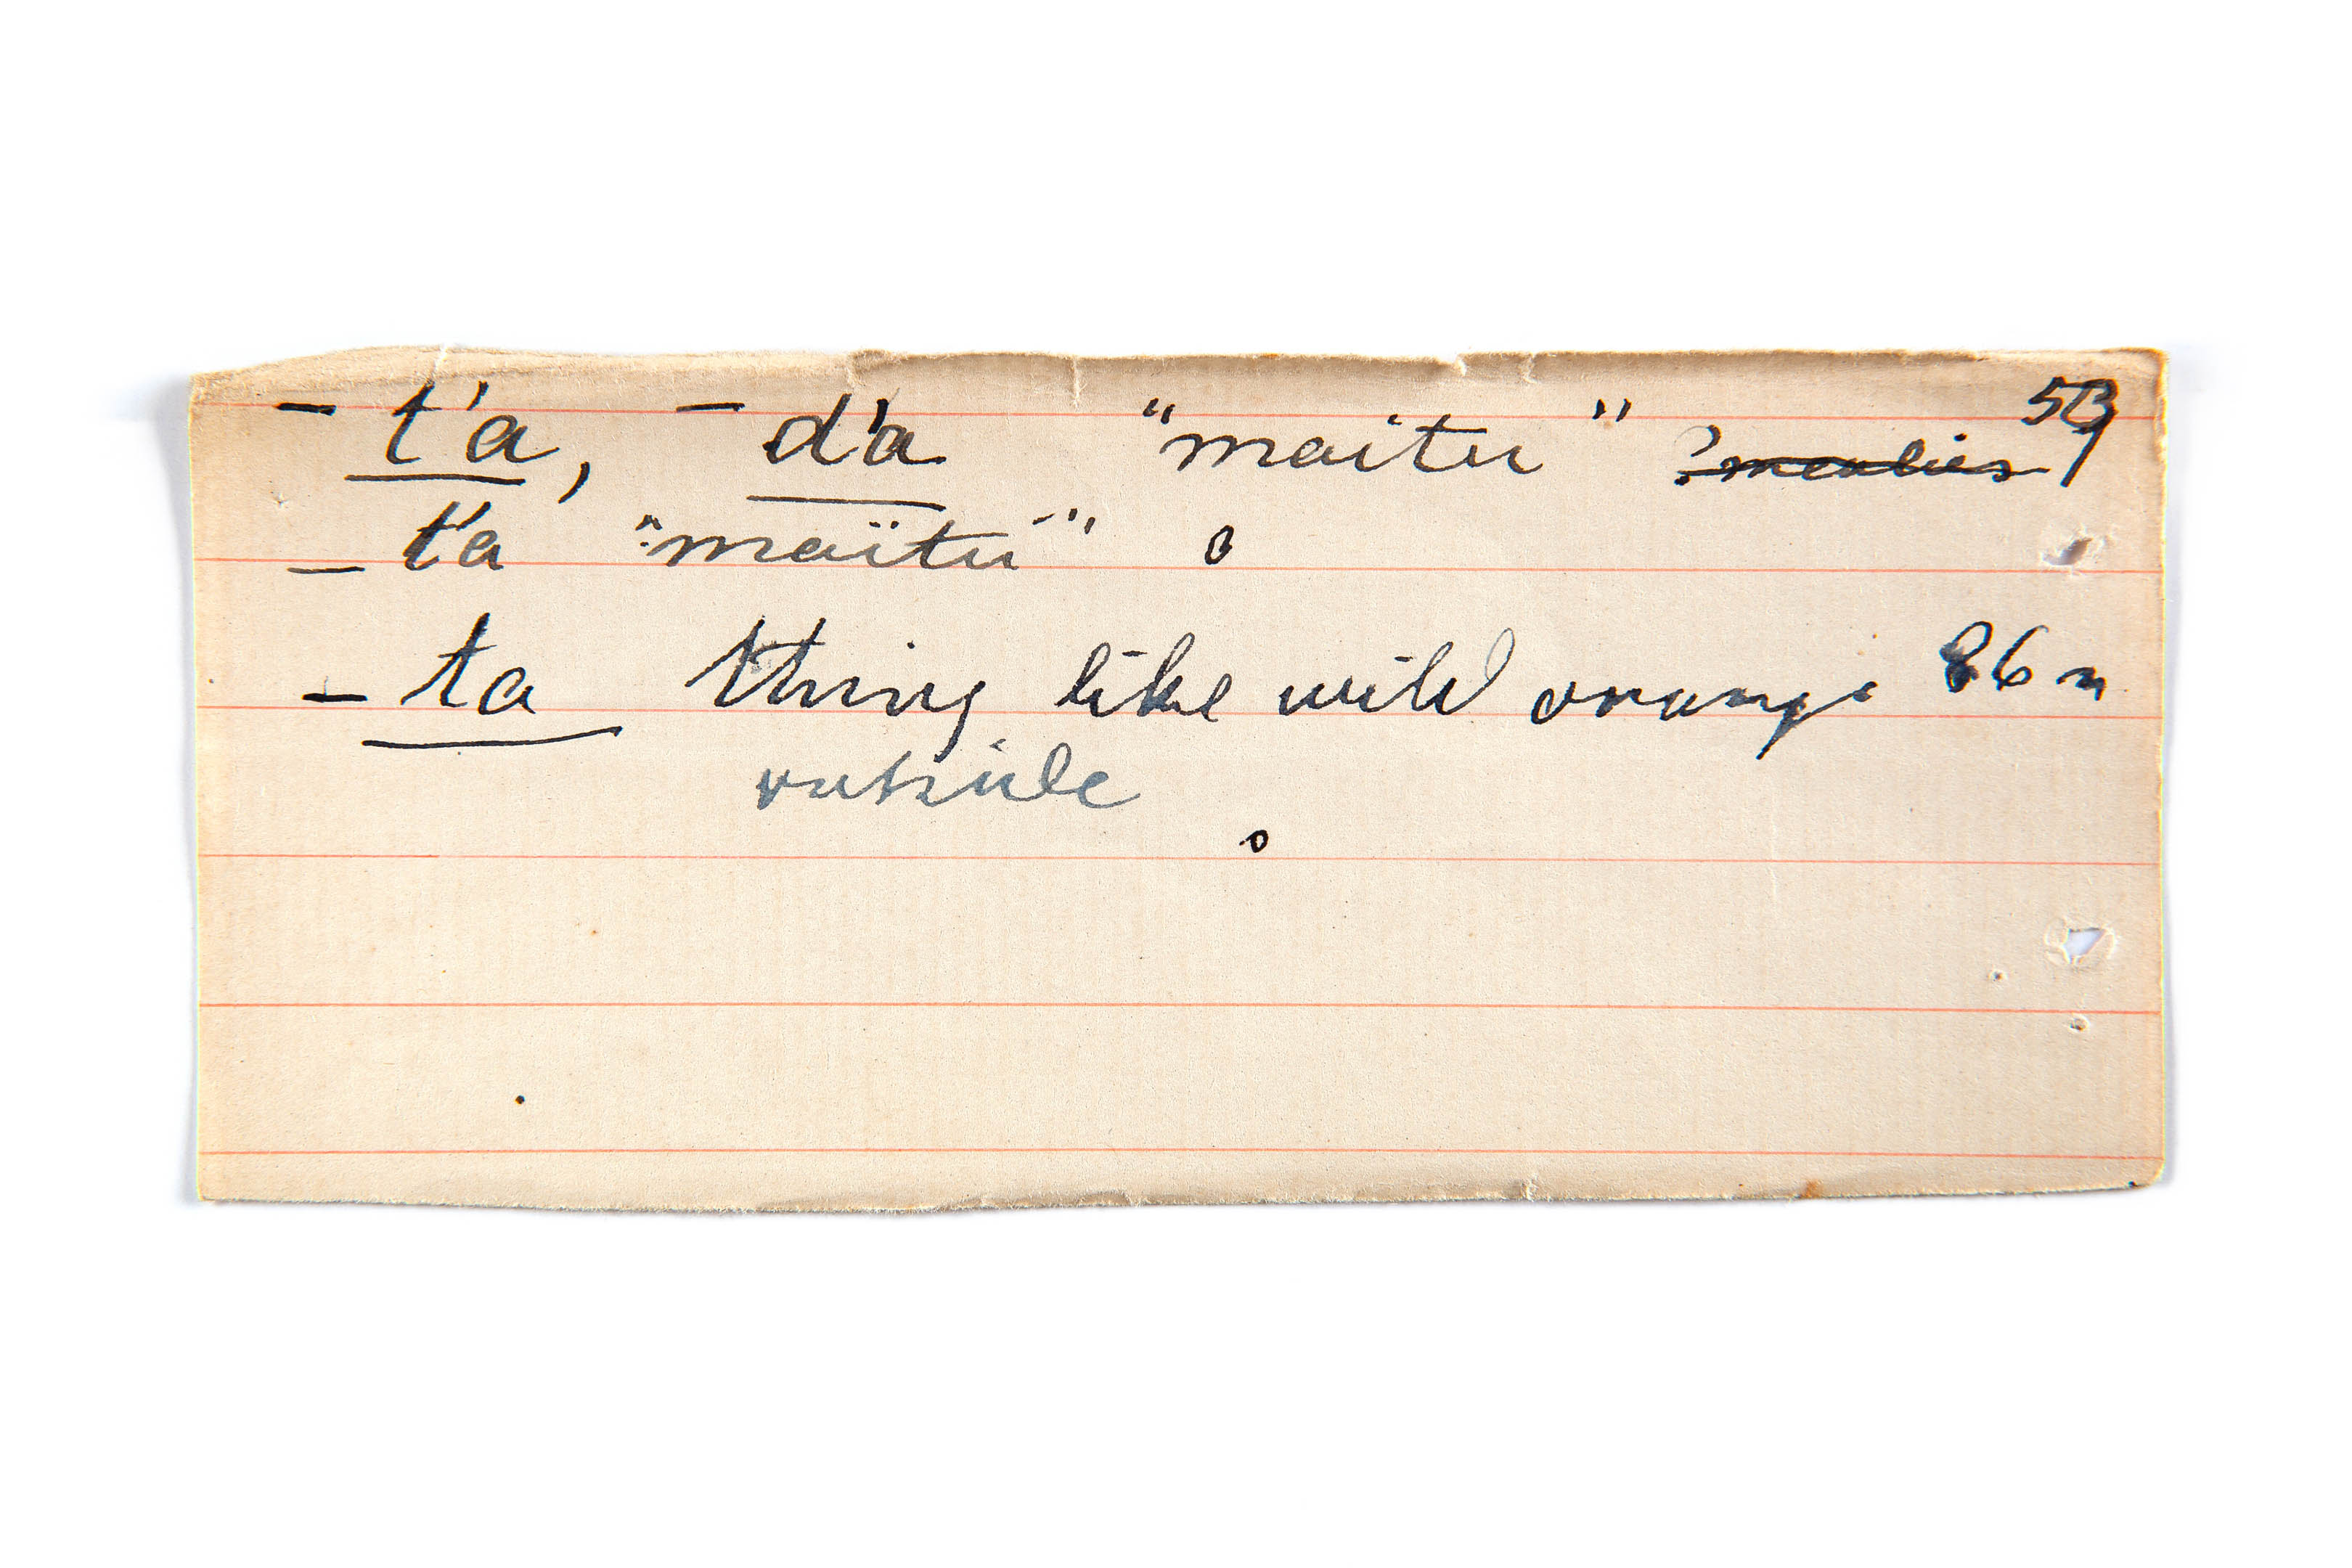 – t'a, – d'a "maitu" ?mealies
– t'a "maïtu"
– ta thing like wild orange 86
outside